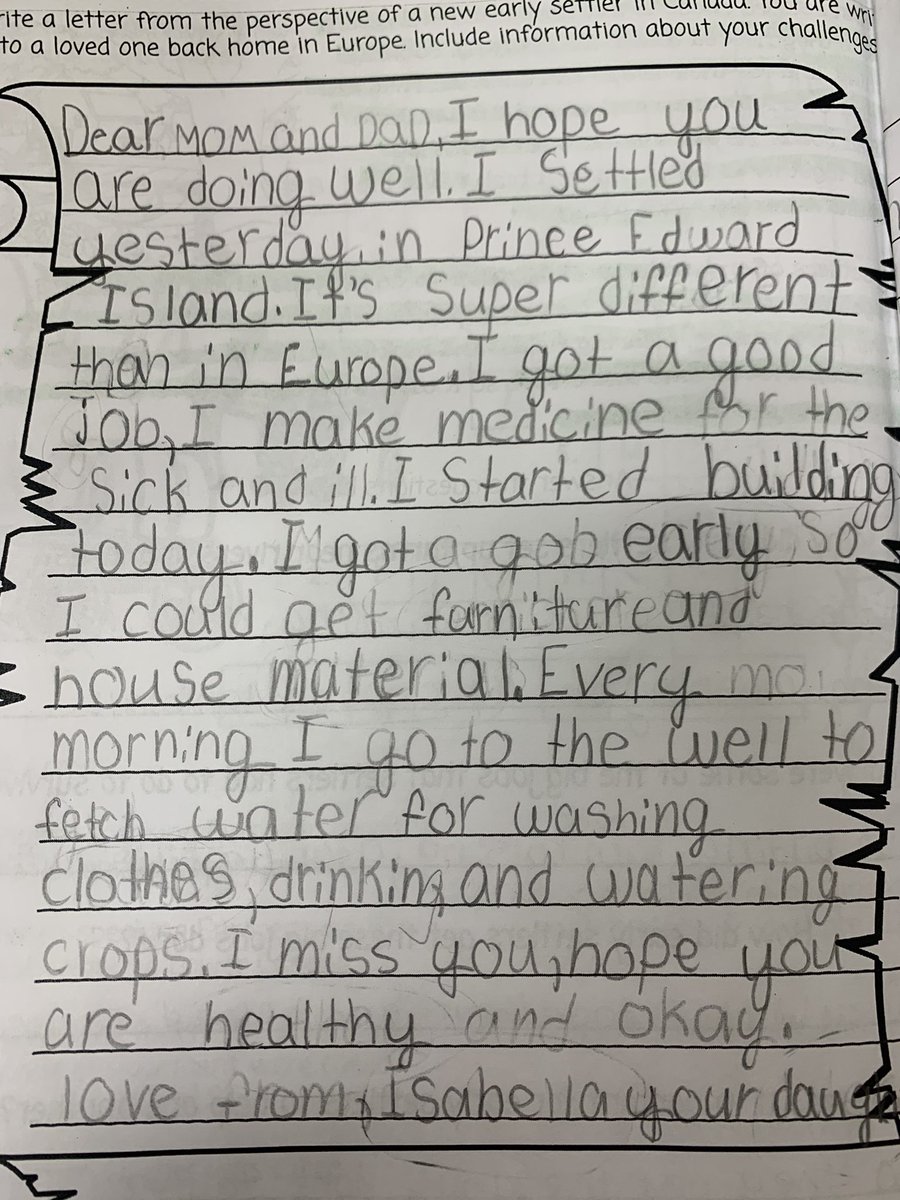 rite a letter from the perspective of a new early settler in Canada. You are wri
to a loved one back home in Europe. Include information about your challenges
Dear MOM and DaD, I hope you
are doing well. I Settled
yesterday, in Prince Edward
Island. It's Super different
then in Europe. I got a good
job, I make medicine for the
Sick and ill. I Started buidding
today. I got a gob early, So
I could get farniture and
house material. Every mo
morning I go to the well to
fetch water for washing
clothes, drinking, and watering
crops. I miss you, hope you
are healthy and okay.
love from, Isabella your daug